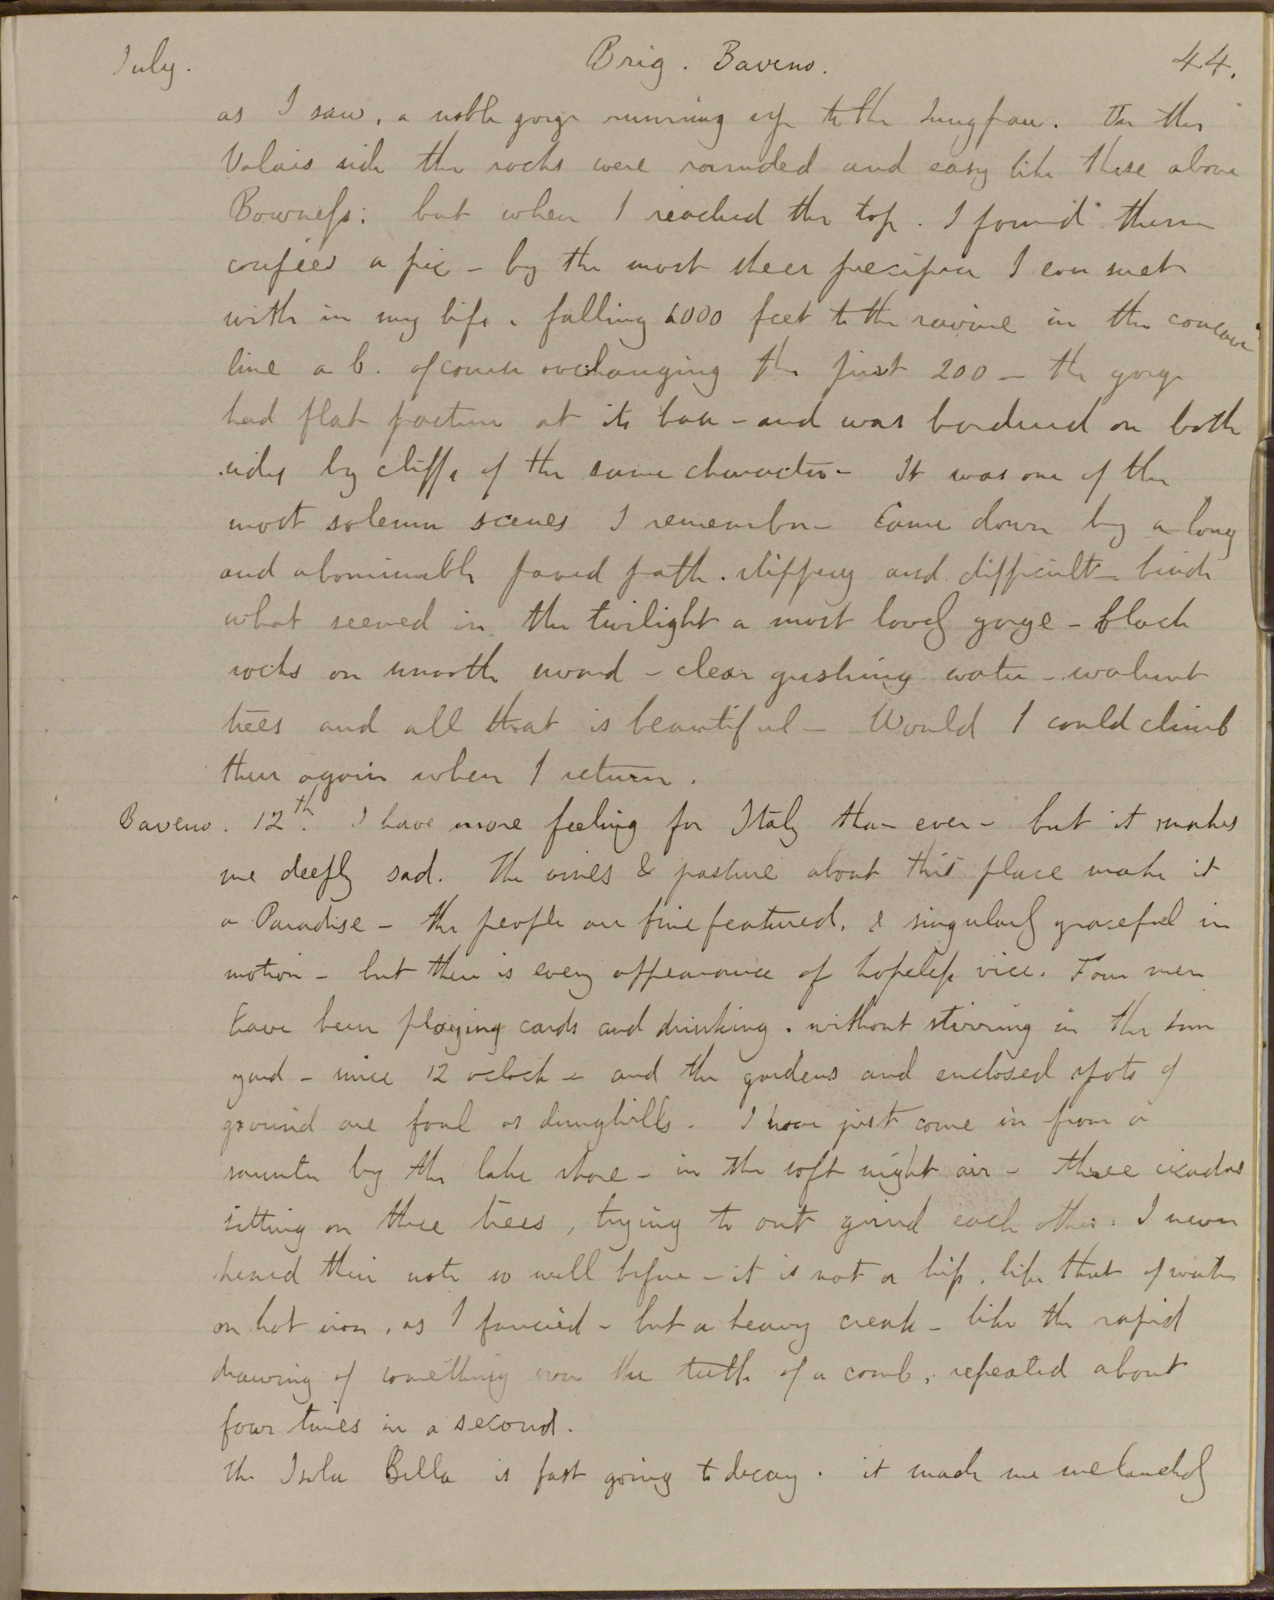 July. Brig. Baveno. 44.
as I saw, a noble gorge running up to the Jungfrau. On the
Valais side the rocks were rounded and easy like those above
Bowness: but when I reached the top. I found them
coupées a pic - by the most sheer precipice I ever met
with in my life. falling 6000 feet to the ravine in the concave
line a b. of course overhanging the first 200 - the gorge
had flat pasture at its base - and was bordered on both
sides by cliffs of the same character - It was one of the
most solemn scenes I remember - Came down by a long
and abominable paved path. slippery and difficult - beside
what seemed in the twilight a most lovely gorge - black
rocks on smooth sward - clear gushing water - walnut
trees and all that is beautiful - Would I could climb
there again when I return.
Baveno. 12th. I have more feeling for Italy than ever - but it makes
me deeply sad. The vines & pasture about this place make it
a Paradise - the people are fine featured, & singularly graceful in
motion - but there is every appearance of hopeless vice. Four men
have been playing cards and drinking. without stirring in the inn
yard - since 12 oclock - and the gardens and enclosed spots of
ground are foul as dunghills. I have just come in from a
saunter by the lake shore - in the soft night air - three cicadas
sitting on three trees, trying to out grind each other. I never
heard their note so well before - it is not a hiss, like that of water
on hot iron, as I fancied - but a heavy creak - like the rapid
drawing of something over the teeth of a comb, repeated about
four times in a second.
The Isola Bella is fast going to decay. it made me melancholy